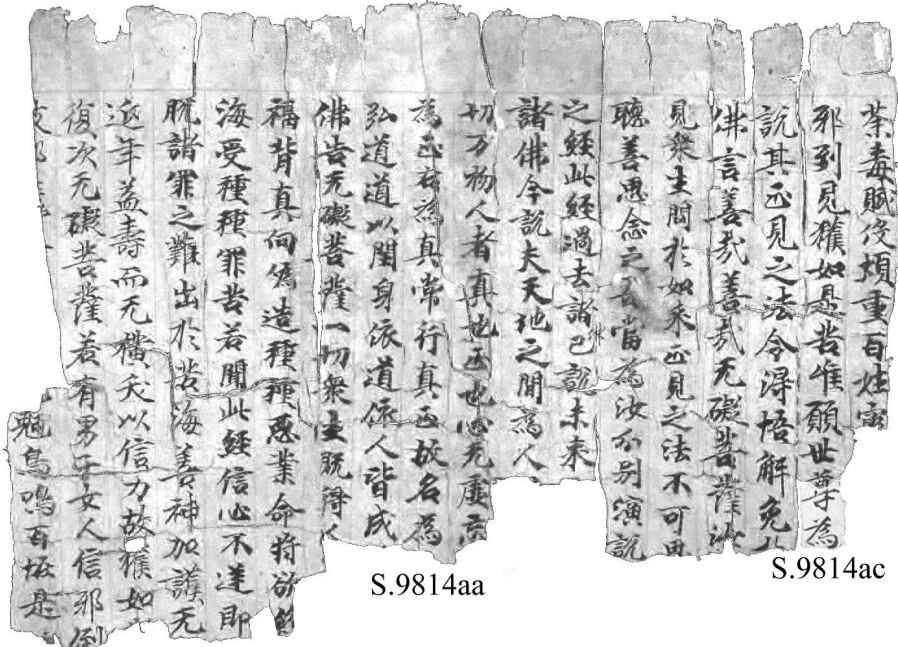 荼毒賦役煩重百姓
邪到見獲如是苦唯願世尊為
說其正見之法令得悟解免
佛言善哉善哉无礙菩薩汝
見衆生問於如来正見之法不可思
聽善思念之吾當為汝分别演說
之經此經過去諸已說未来
諸佛今說夫天地之間為人
切万物人者真也正也心无虛妄
為正右為真常行真正故名為
弘道道以閏身依道依人皆成
佛告无礙菩薩一切衆生既得人
福背真向偽造種種惡業命將欲終
海受種種罪苦若聞此經信心不逆即
脫諸罪之難出於苦海善神加護无
延年益壽而无橫夭以信力故獲如
復次无礙菩薩若有男子女人信邪倒
魎鳥鳴百怪是
S.9814aa
S.9814ac